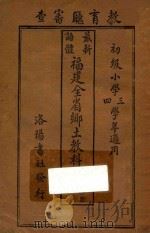 教育廳審查
初級小學三四學年適用
最新語體
福建全省鄉土教科
洛陽書社發行